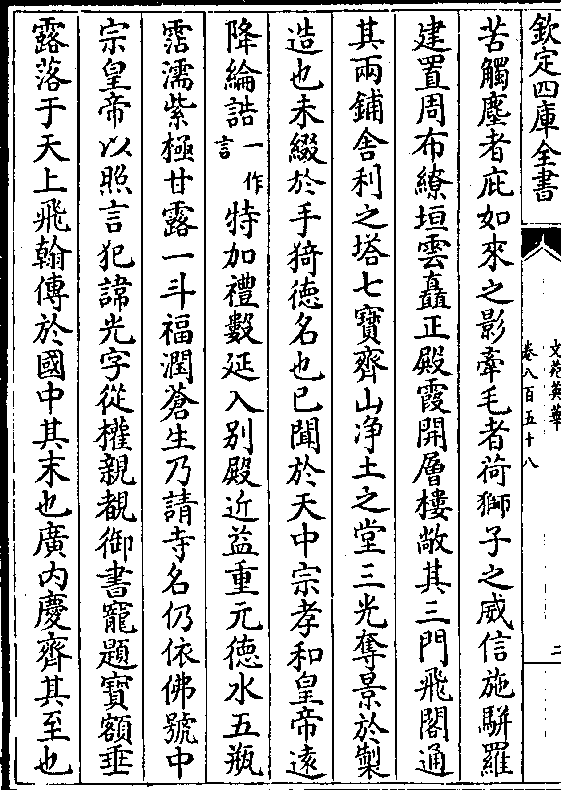 欽定四庫全書
文苑英華
卷八百五十八
二
苦觸塵者庇如來之影牽毛者荷獅子之威信施駢羅
建置周布繚垣雲矗正殿霞開層樓敞其三門飛閣通
其兩鋪舍利之塔七寶齊山净土之堂三光奪景於製
造也未綴於手猗德名也已聞於天中宗孝和皇帝遠
降綸誥一作言特加禮數延入別殿近益重元德水五瓶
霑濡紫極甘露一斗福潤蒼生乃請寺名仍依佛號中
宗皇帝以照言犯諱光字從權親覩御書寵題寶額垂
露落于天上飛翰傳於國中其末也廣内慶齊其至也